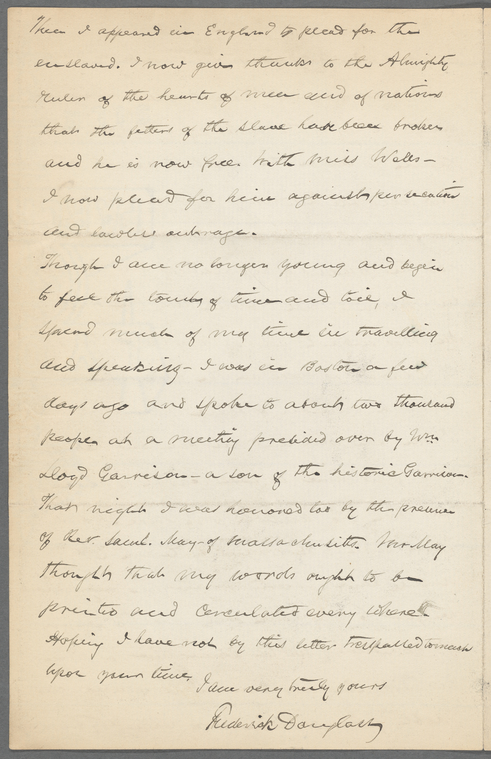 Then I appeared in England to plead for the
enslaved. I now give thanks to the Almighty
ruler of the hearts of men and of nations
that the fetters of the slave have been broken
and he is now free. With Miss Wells –
I now plead for him against persecution
and lawless outrage.
Though I am no longer young and begin
to feel the touch of time and toil, I
spend much of my time in travelling
and speaking – I was in Boston a few
days ago and spoke to about two thousand
people at a meeting presided over by Wm
Lloyd Garrison – a son of the historic Garrison.
That night I was honored too by the presence
of Rev. Saml. May – of Massachusetts. Mr May
thought that my words ought to be
printed and cerculated every where.
Hoping I have not by this letter trespassed too much
upon your time.
I am very truly yours
Frederick Douglass